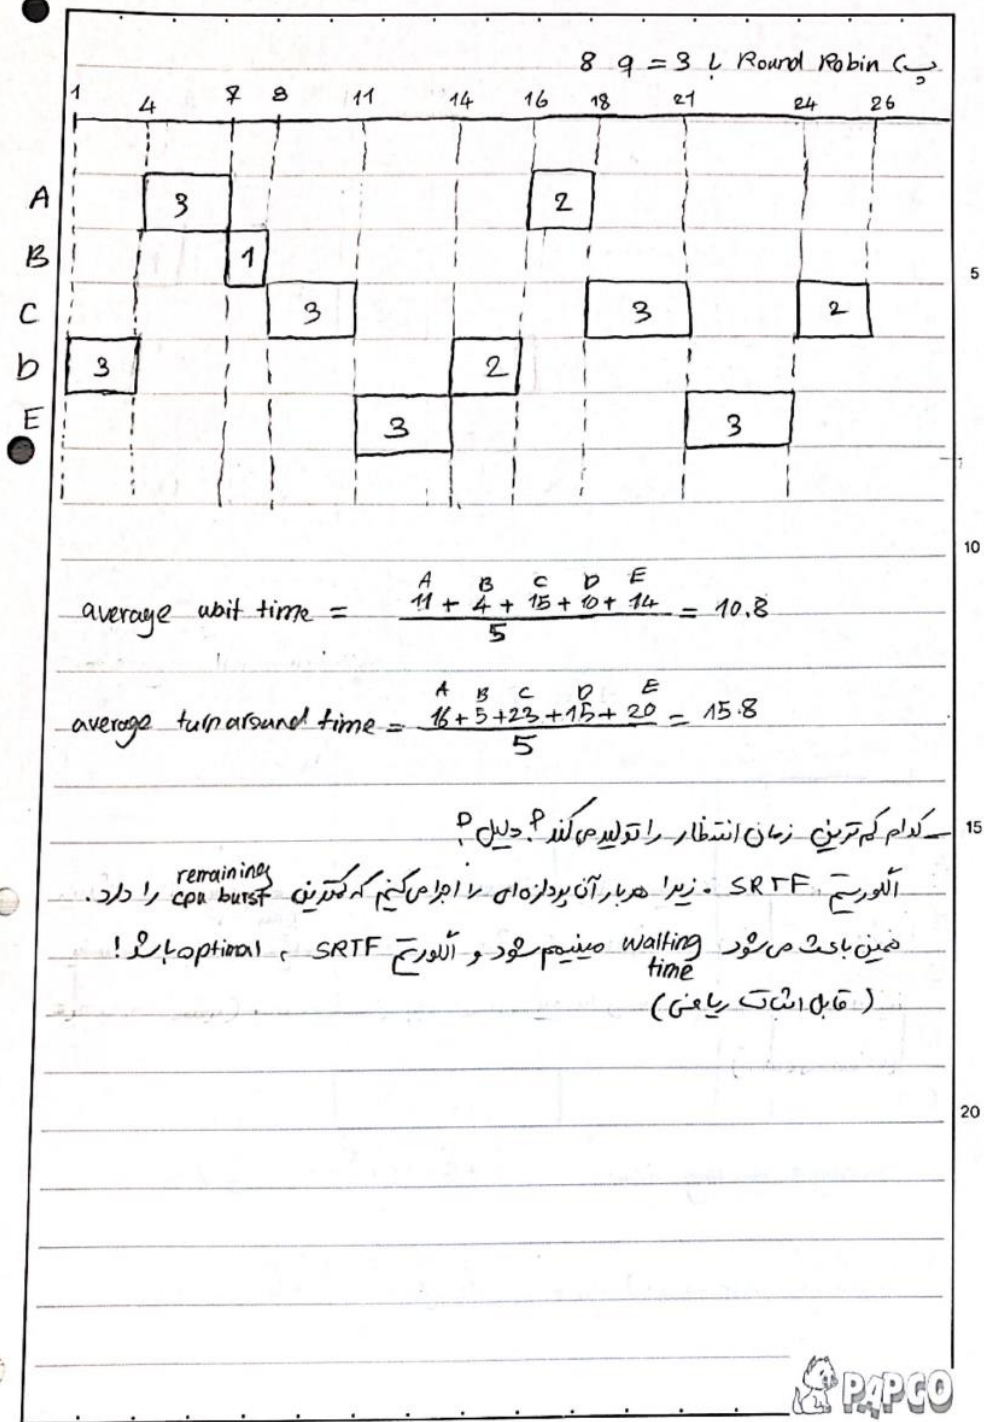 ب) Round Robin با q = 3 8
1 4 7 8 11 14 16 18 21 24 26
A 3 2
B 1
C 3 3 2
D 3 2
E 3 3
5
10
A B C D E
average wait time = 11 + 4 + 15 + 10 + 14 / 5 = 10.8
A B C D E
average turnaround time = 16 + 5 + 23 + 15 + 20 / 5 = 15.8
15
- کدام کم ترین زمان انتظار را تولید می کند؟ دلیل؟
الگوریتم SRTF. زیرا هر بار آن پردازه ای را اجرا می کنیم که کمترین remaining cpu burst را دارد.
همین باعث می شود waiting time مینیمم شود و الگوریتم SRTF، optimal باشد!
(قابل اثبات ریاضی)
20
PAPCO